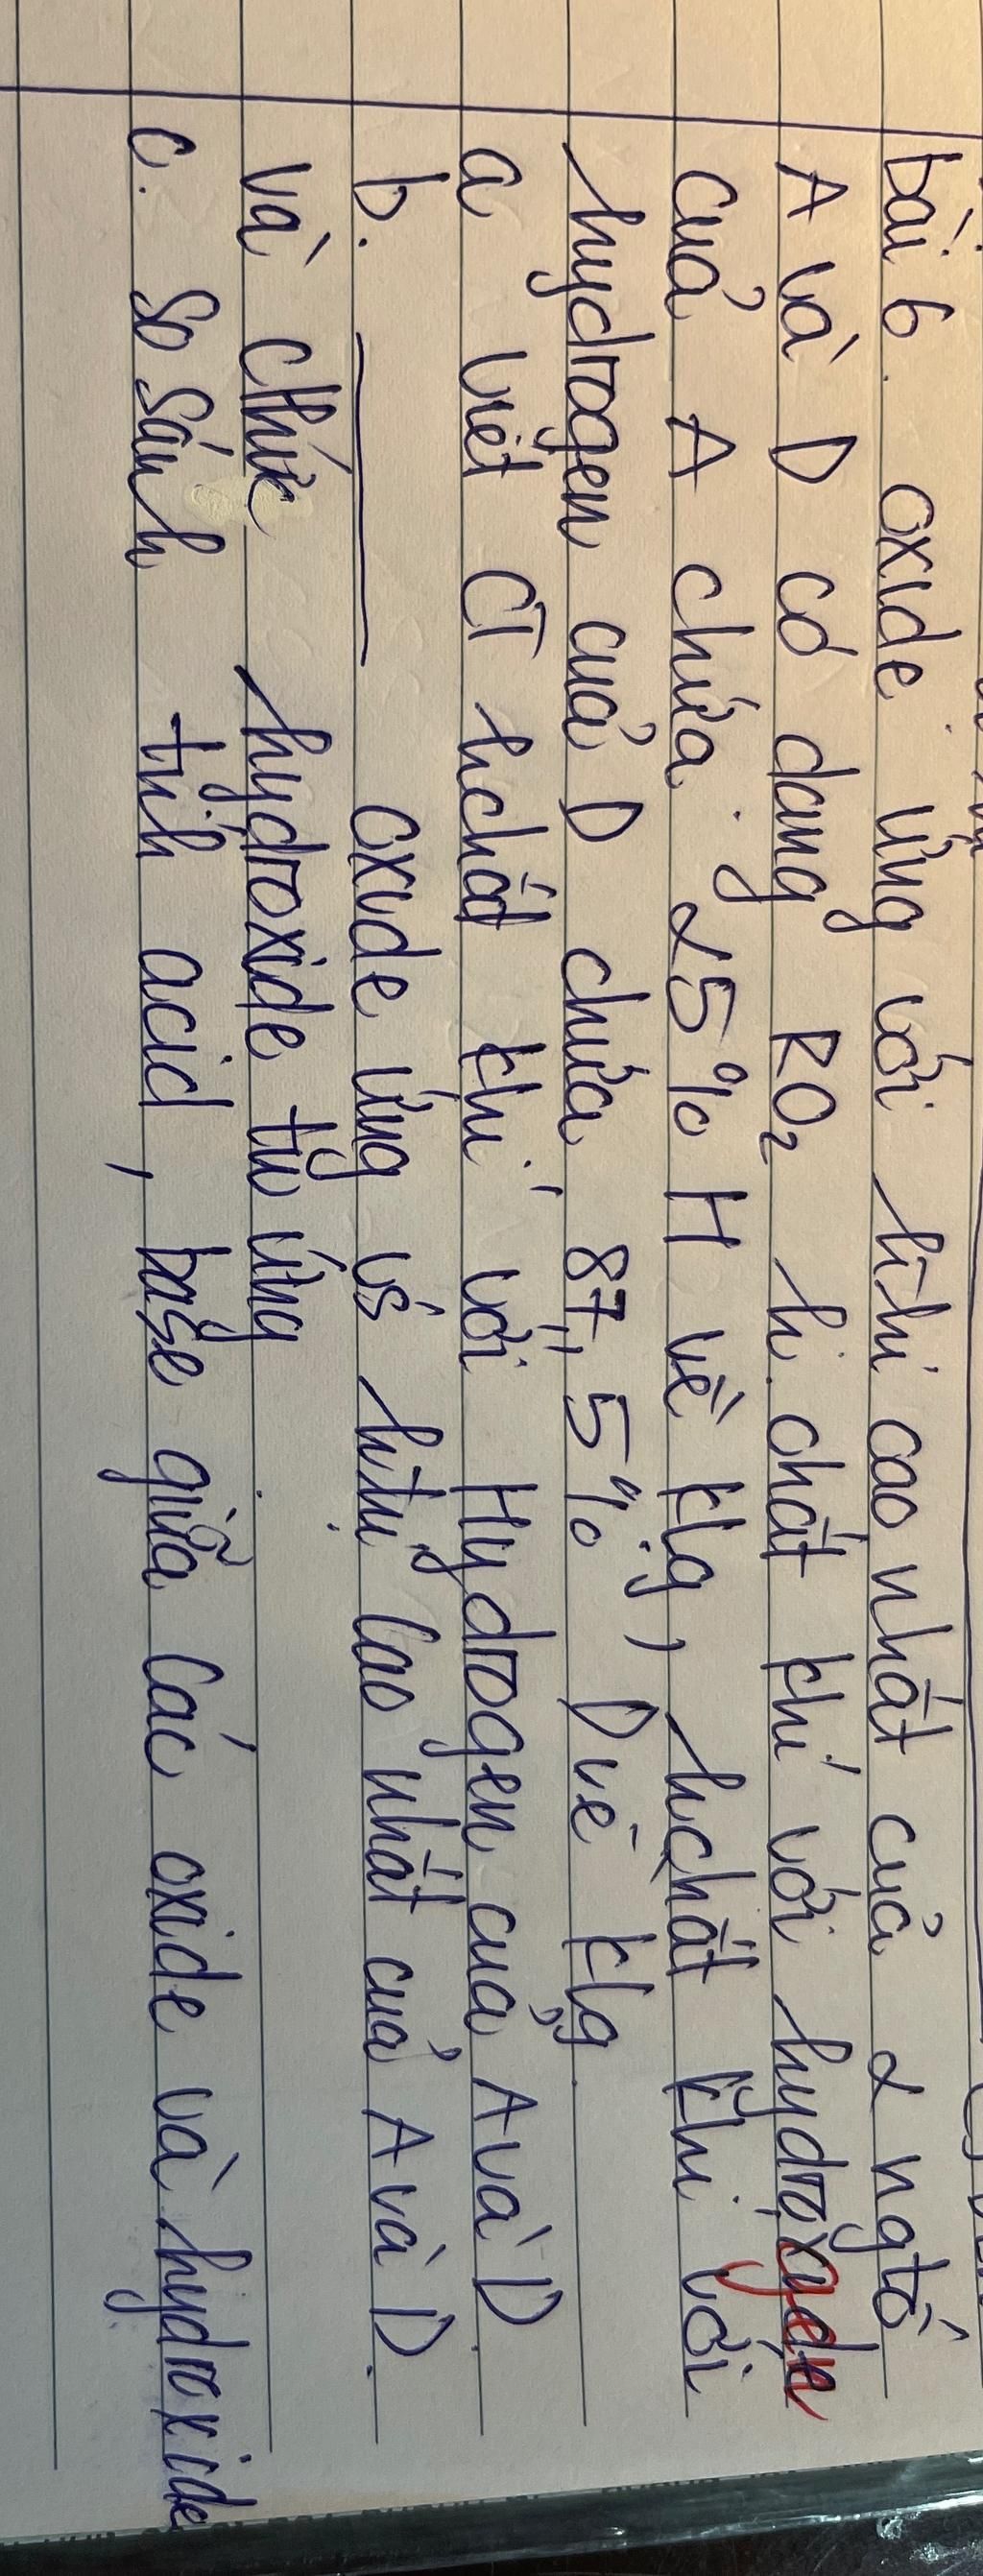 bài 6. oxide ứng với htrị cao nhất của 2 ngtố
A và D có dạng RO₂ h.chất khí với hydrogen
của A chứa 25% H về klg, hchất khí với
hydrogen của D chứa 87,5% D về klg.
a viết CT hchất khí với Hydrogen của A và D.
b. oxide ứng vs htrị cao nhất của A và D.
và chức hydroxide tg ứng
c. so sánh tính acid, base giữa các oxide và hydroxide